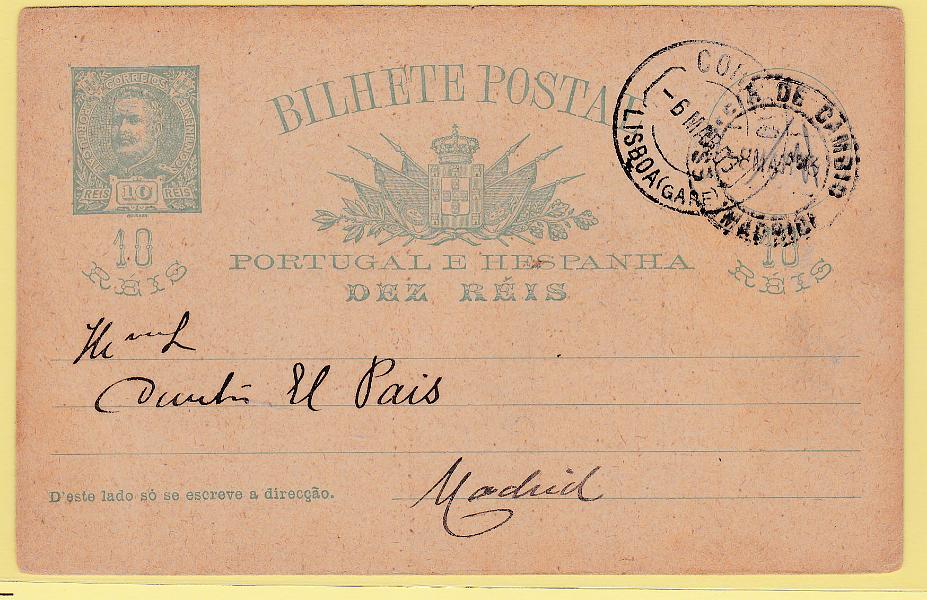 CORREIOS
REIS 10 REIS
10
RÉIS
BILHETE POSTAL
PORTUGAL E HESPANHA
DEZ RÉIS
10
RÉIS
COR
-6 MAR 03
LISBOA (GARE)
DE CAMBIO
MADRID
El Pais
Madrid
D'este lado só se escreve a direcção.